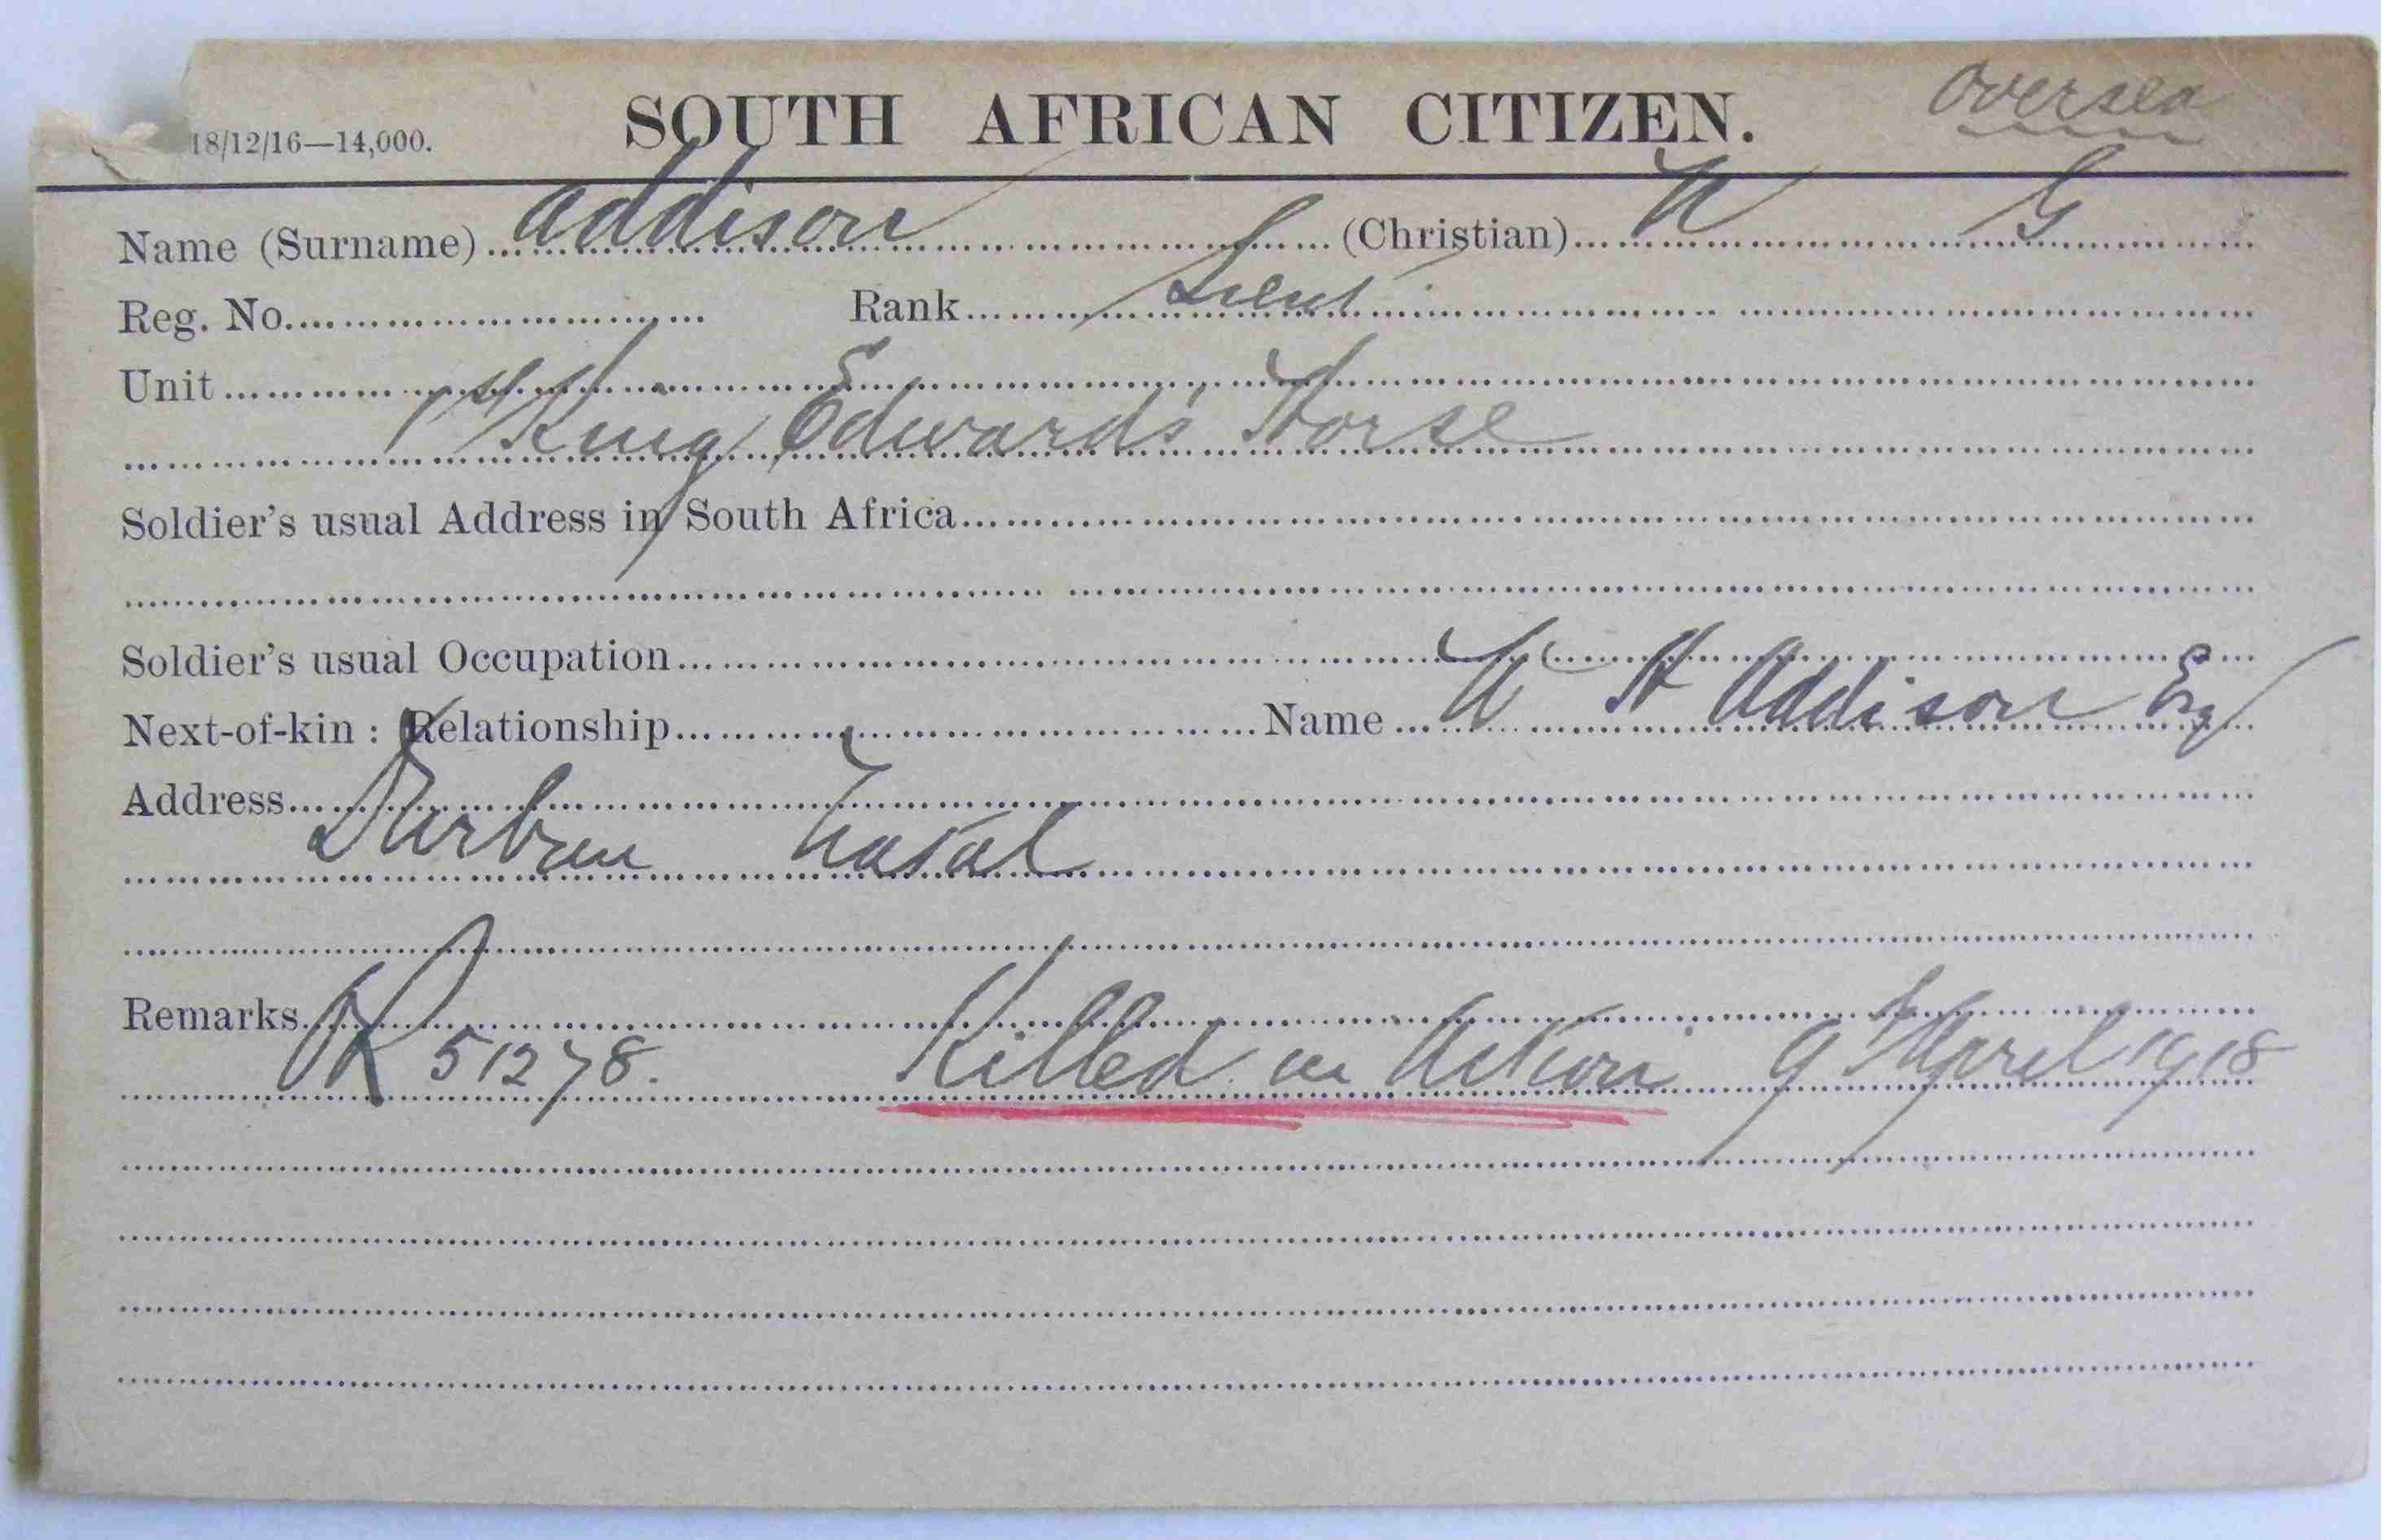 Oversea
18/12/16—14,000. SOUTH AFRICAN CITIZEN.
Name (Surname) Addison (Christian) W G
Reg. No. Rank Lieut
Unit
1st King Edward's Horse
Soldier's usual Address in South Africa
Soldier's usual Occupation
Next-of-kin : Relationship Name W H Addison Esq
Address
Durban Natal
Remarks
51278. Killed in Action 9 April 1918